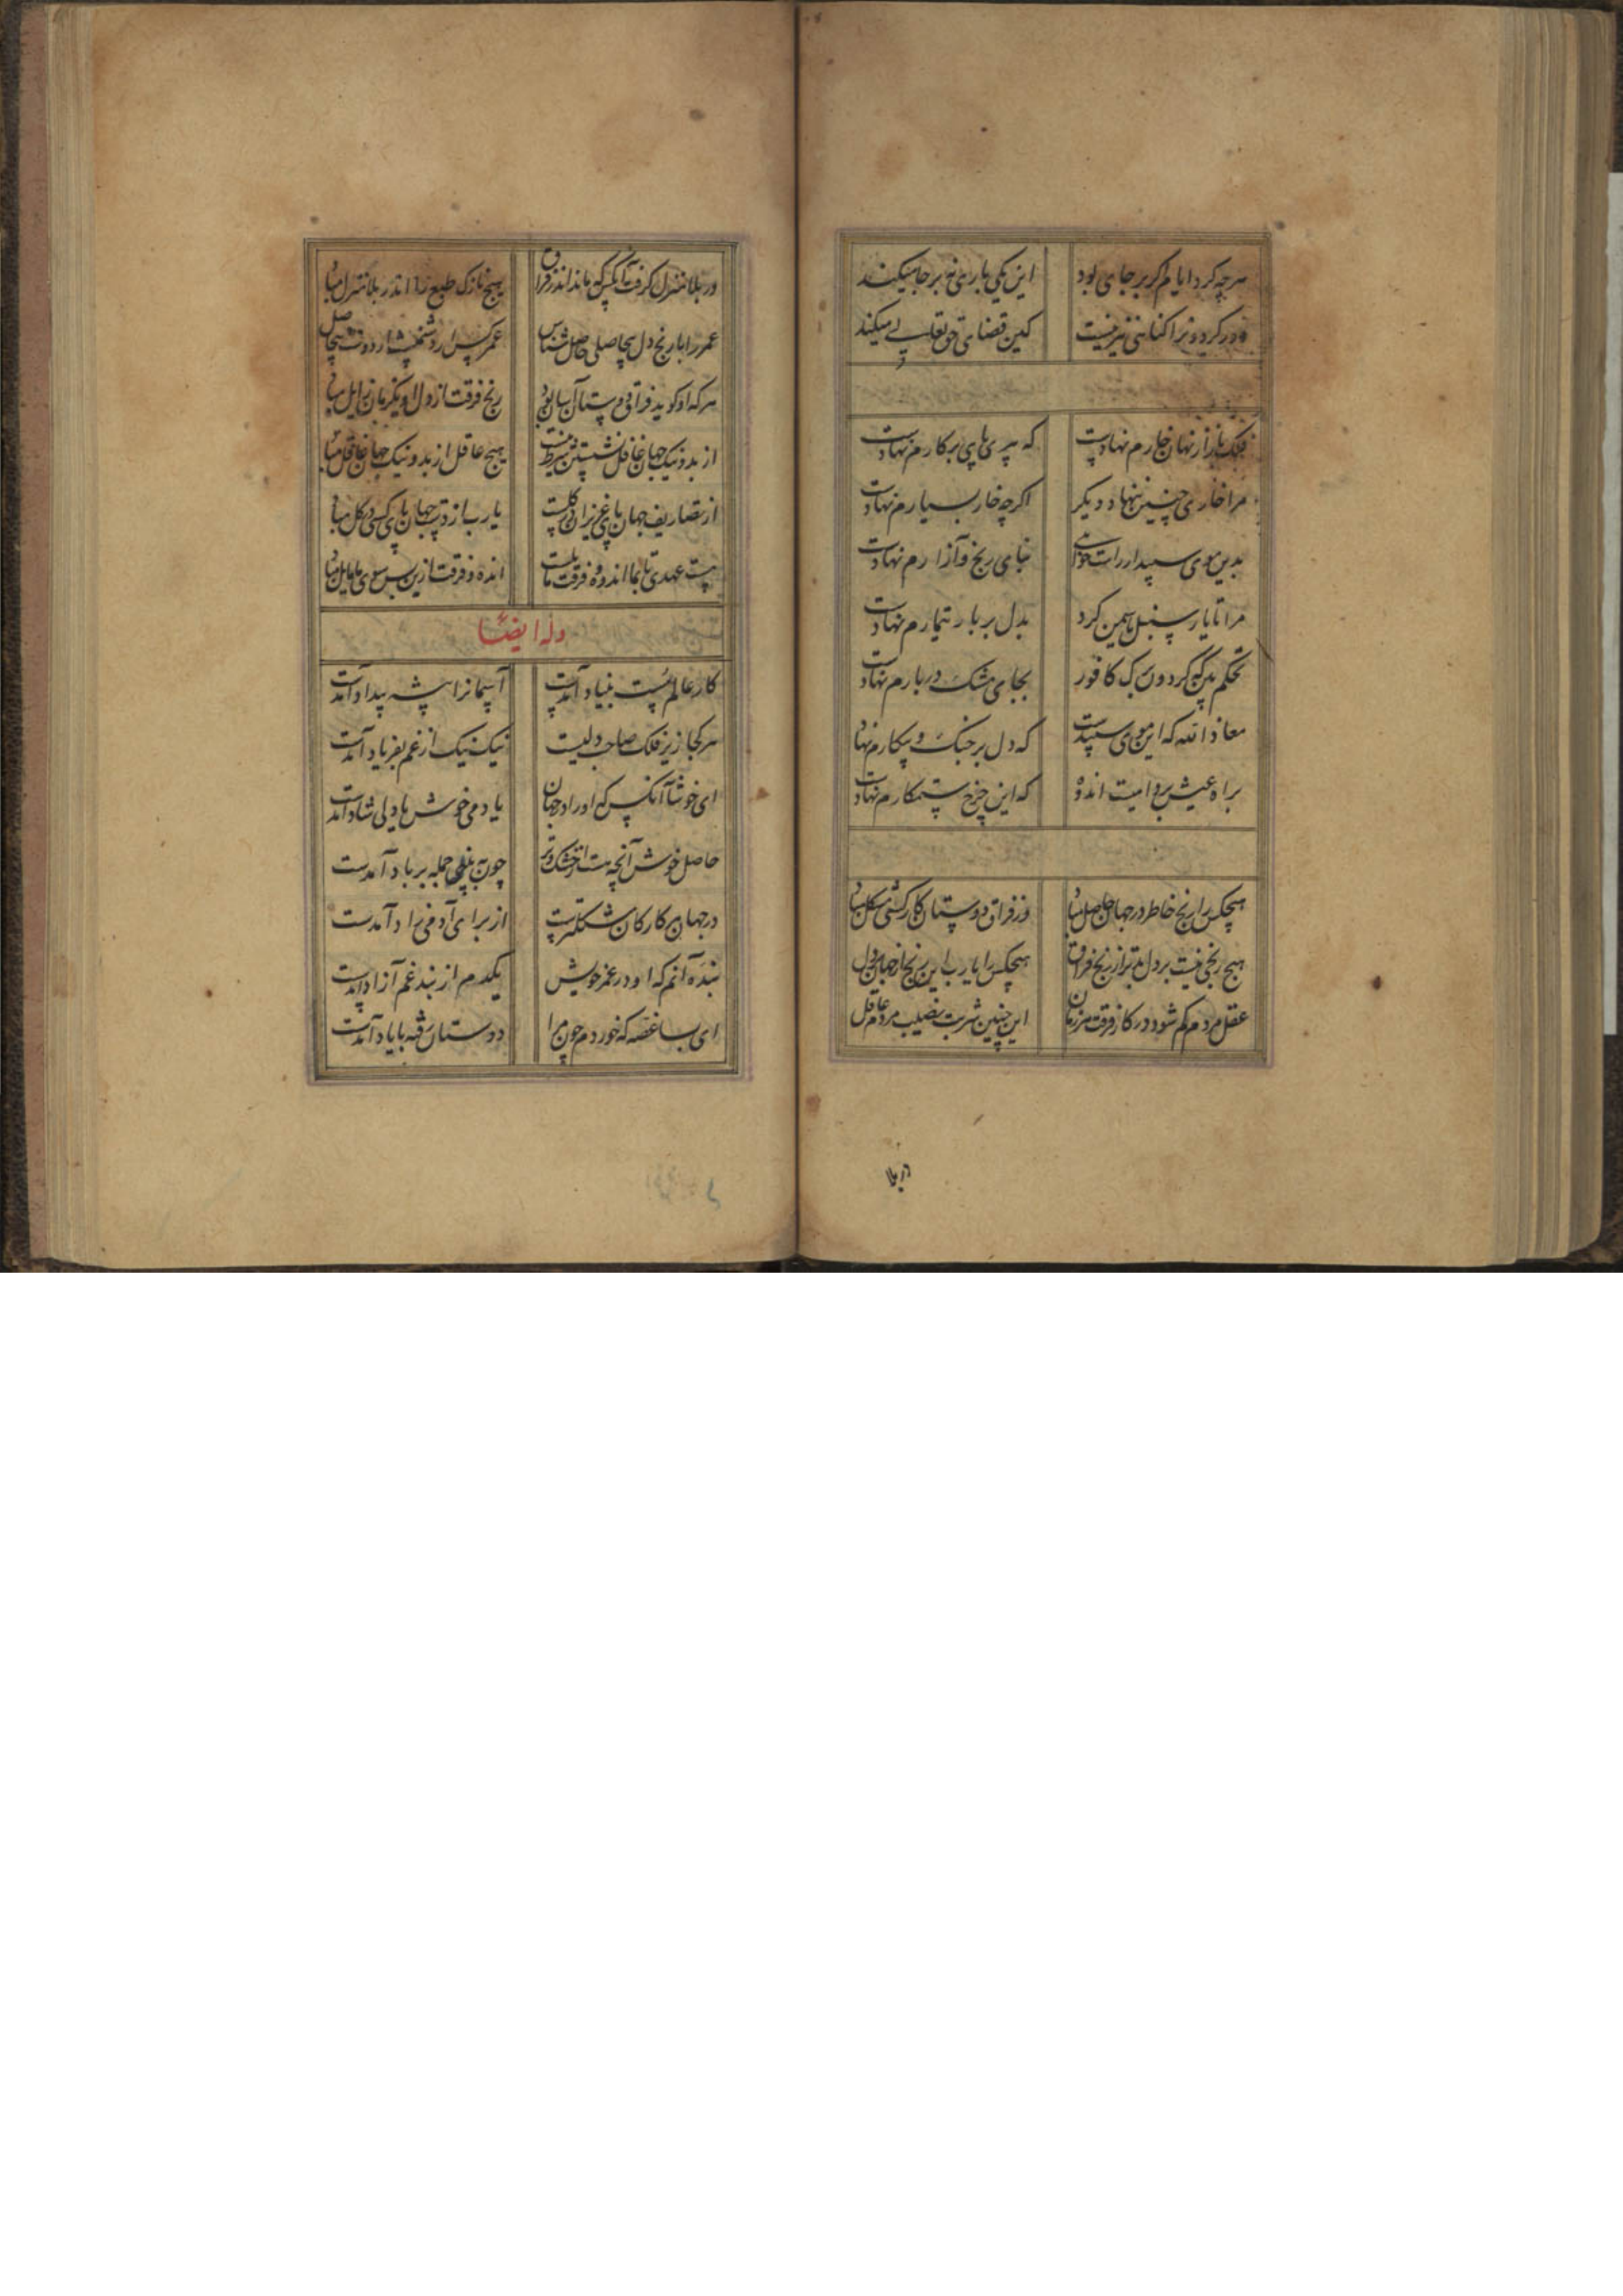 هرچه کرد ایام گر بر جای بود این یکی باری نه بر جا میکند
دور گردونرا گناهی نیز نیست کین قضای حق تعالی میکند
فلک باز از نهان خارم نهادست که پیری پای بر کارم نهادست
مرا خاری چنین ننهاد دیگر اگرچه خار بسیارم نهادست
بدین موی سپید ار راست خواهی بنای رنج و آزارم نهادست
مرا تا یار سنبل یاسمین کرد بدل بر بار تیمارم نهادست
تحکم بین که گردون گرد کافور بجای مشک در بارم نهادست
معاذ الله که این موی سپیدست که دل بر جنگ و پیکارم نهاد
براه عیش بر دامیست اندوه که این چرخ ستمکارم نهادست
هیچکس را رنج خاطر در جهان حاصل مباد وز فراق دوستان کار کسی مشکل مباد
هیچ رنجی نیست بر دل بدتر از رنج فراق هیچکس را یارب این رنج از جهان
عقل مردم کم شود در کار فرقت هر زمان این چنین شربت نصیب مردم عاقل
در بلا
در بلا منزل گرفت آنکس که ماند اندر فراق هیچ نازک طبع را اندر بلا منزل مباد
عمر را با رنج دل بیحاصلی حاصل شناس عمر کس
هرکه او گوید فراق دوستان آسان بود رنج فرقت از دل او یکزمان زایل مباد
از بد و نیک جهان غافل نشستن شرط نیست هیچ عاقل از بد و نیک جهان غافل مباد
از تصاریف جهان پای عزیزان در گلست یارب از دست جهان پای کسی در گل مباد
هست عهدی تا بما اندوه و فرقت مایلست انده و فرقت ازین پس سوی ما مایل مباد
وله ایضا
کار عالم سست بنیاد آمدست آسمانرا پیشه بیداد آمدست
هر کجا زیر فلک صاحب دلیست نیک نیک از غم بفریاد آمدست
ای خوشا آنکس که او را در جهان یا دمی خوش یا دلی شاد آمدست
حاصل خوش آنچه هست از خشک و تر چون ببینی جمله بر باد آمدست
در جهان هر کار کان مشکلترست از برای آدمی زاد آمدست
بنده آنم که او در عمر خویش یکدم از بند غم آزاد آمدست
ای بسا غصه که خوردم چون مرا دوستان رفته با یاد آمدست